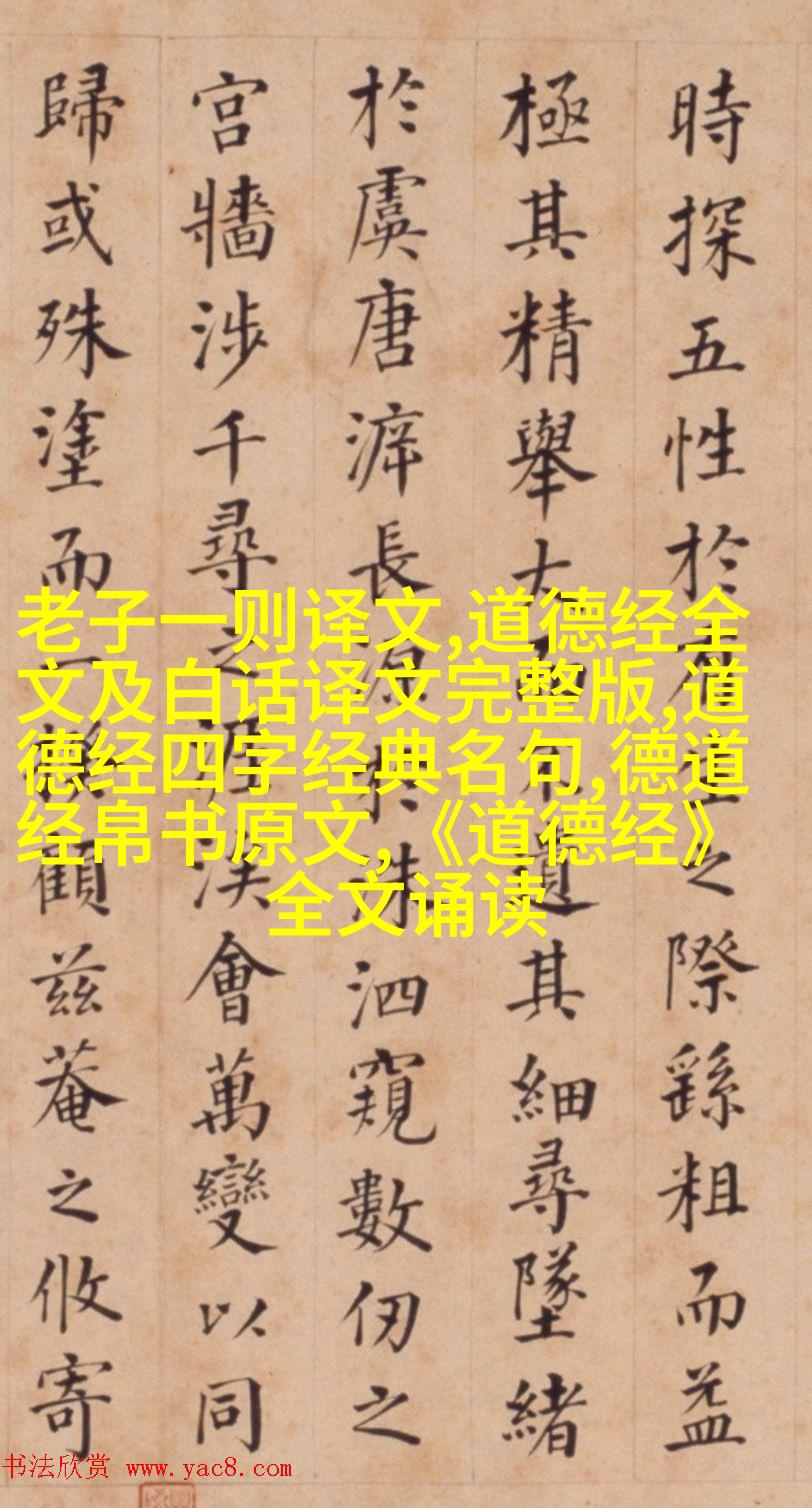 時探五性於有之際繇粗而益
極其精舉大而不遺其細尋墜緒
於虞唐長源於洙泗窺數仞之
宮牆涉千尋之涯涘會萬變以同
歸或殊塗而一致顧茲菴之攸寄
老子一则译文,道德经全
文及白话译文完整版,道
德经四字经典名句,德道
经帛书原文,《道德经》
全文诵读
书法欣赏 www.yac8.com